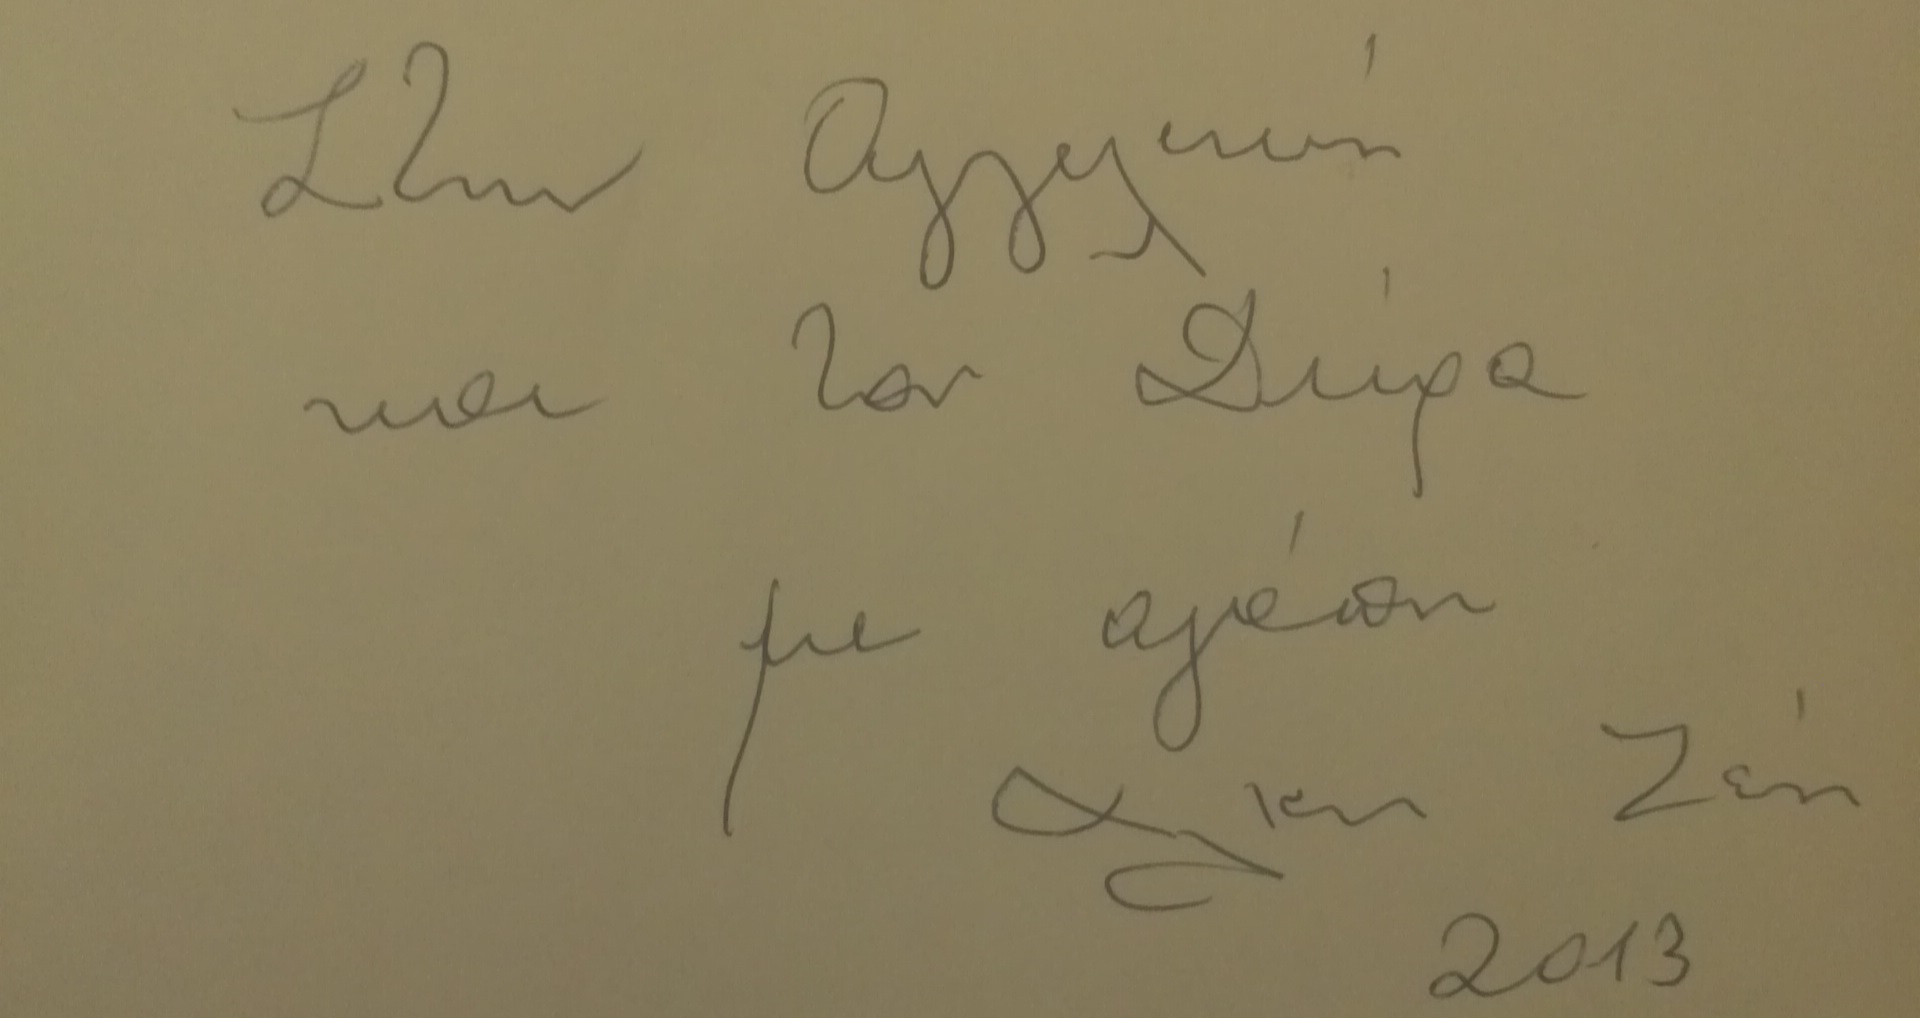 Στην Αγγελική
και τον Σπύρο
με αγάπη
Άλκη Ζέη
2013